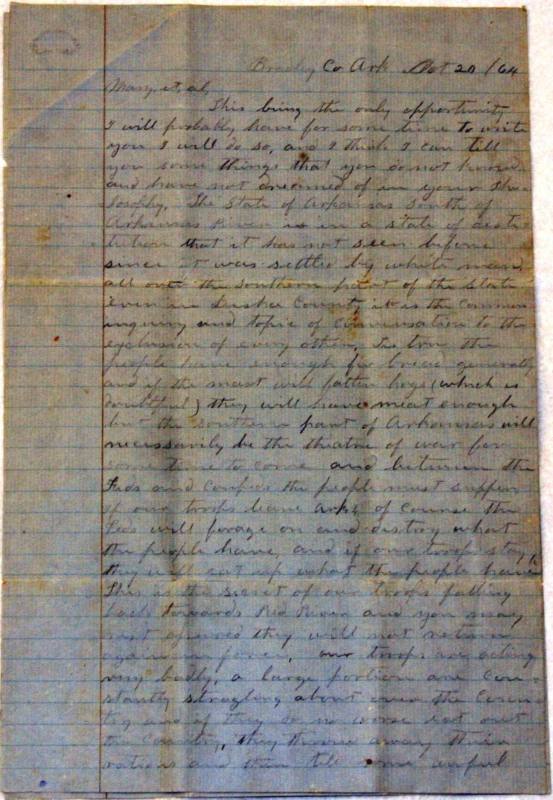 Bradley Co Ark Oct 20 /64
Mary, et, al,
This being the only opportunity
I will probably have for some time to write
you I will do so, and I think I can tell
you some things that you do not know
and have not dreamed of in your Phi-
losophy. The State of Arkansas South of
Arkansas River is in a state of desti-
tution that it has not seen before
since it was settled by white men
all over the Southern part of the State
Even in County it is the common
inquiry and topic of conversation to the
exclusion of every other, Tis true the
people have enough for bread generally
and if the mast will fatten hogs (which is
doubtful) they will have meat enough
but the southern part of Arkansas will
necessarily be the theatre of war for
some time to come and between the
Feds and Confeds the people must suffer
if our troops leave Arks of Course the
Feds will forage on and distroy what
the people have, and if our troops stay
they will eat up what the people have
This is the secret of our troops falling
back towards Red River and you may
rest assured they will not return
again in force, our troops are acting
very badly, a large portion are con-
stantly stragling about over the Coun-
try and if they do no worse eat out
the Country, they throw away their
rations and then tell some awful